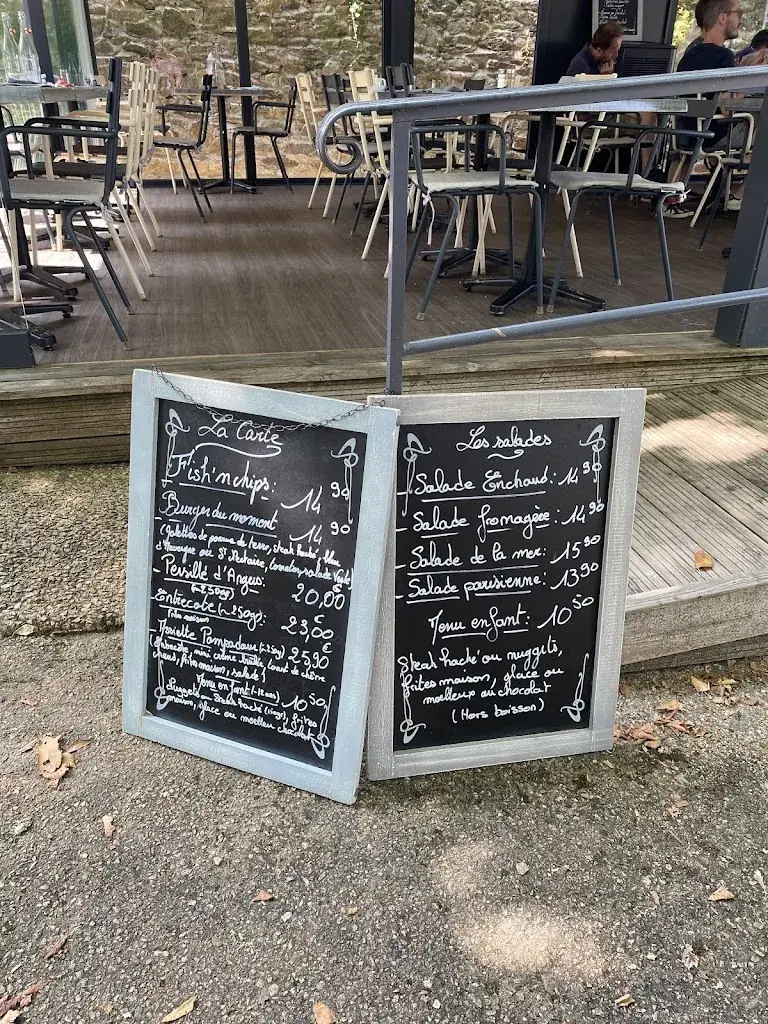 La Carte
Fish'n chips: 14 90
Burger du moment 14 90
(Galettes de pomme de terre, steak haché, bleu
d'Auvergne ou St Nectaire, tomates, salade verte)
- Persillé d'Angus: 20,00€
(~250gr)
Entrecôte (~250gr): 23,00€
frites maison
Assiette Pompadour 25,90€
mini crème brûlée
chaud, frites maison, salade)
Menu enfant (-12 ans) 10 50
Nuggets ou Steak haché frites
maison, glace ou moelleux chocolat
Les salades
- Salade Enchaud: 14 90
- Salade fromagère: 14 90
- Salade de la mer: 15 90
- Salade parisienne: 13 90
Menu enfant: 10 50
Steak haché ou nuggets,
frites maison, glace ou
moelleux au chocolat
(Hors boisson)